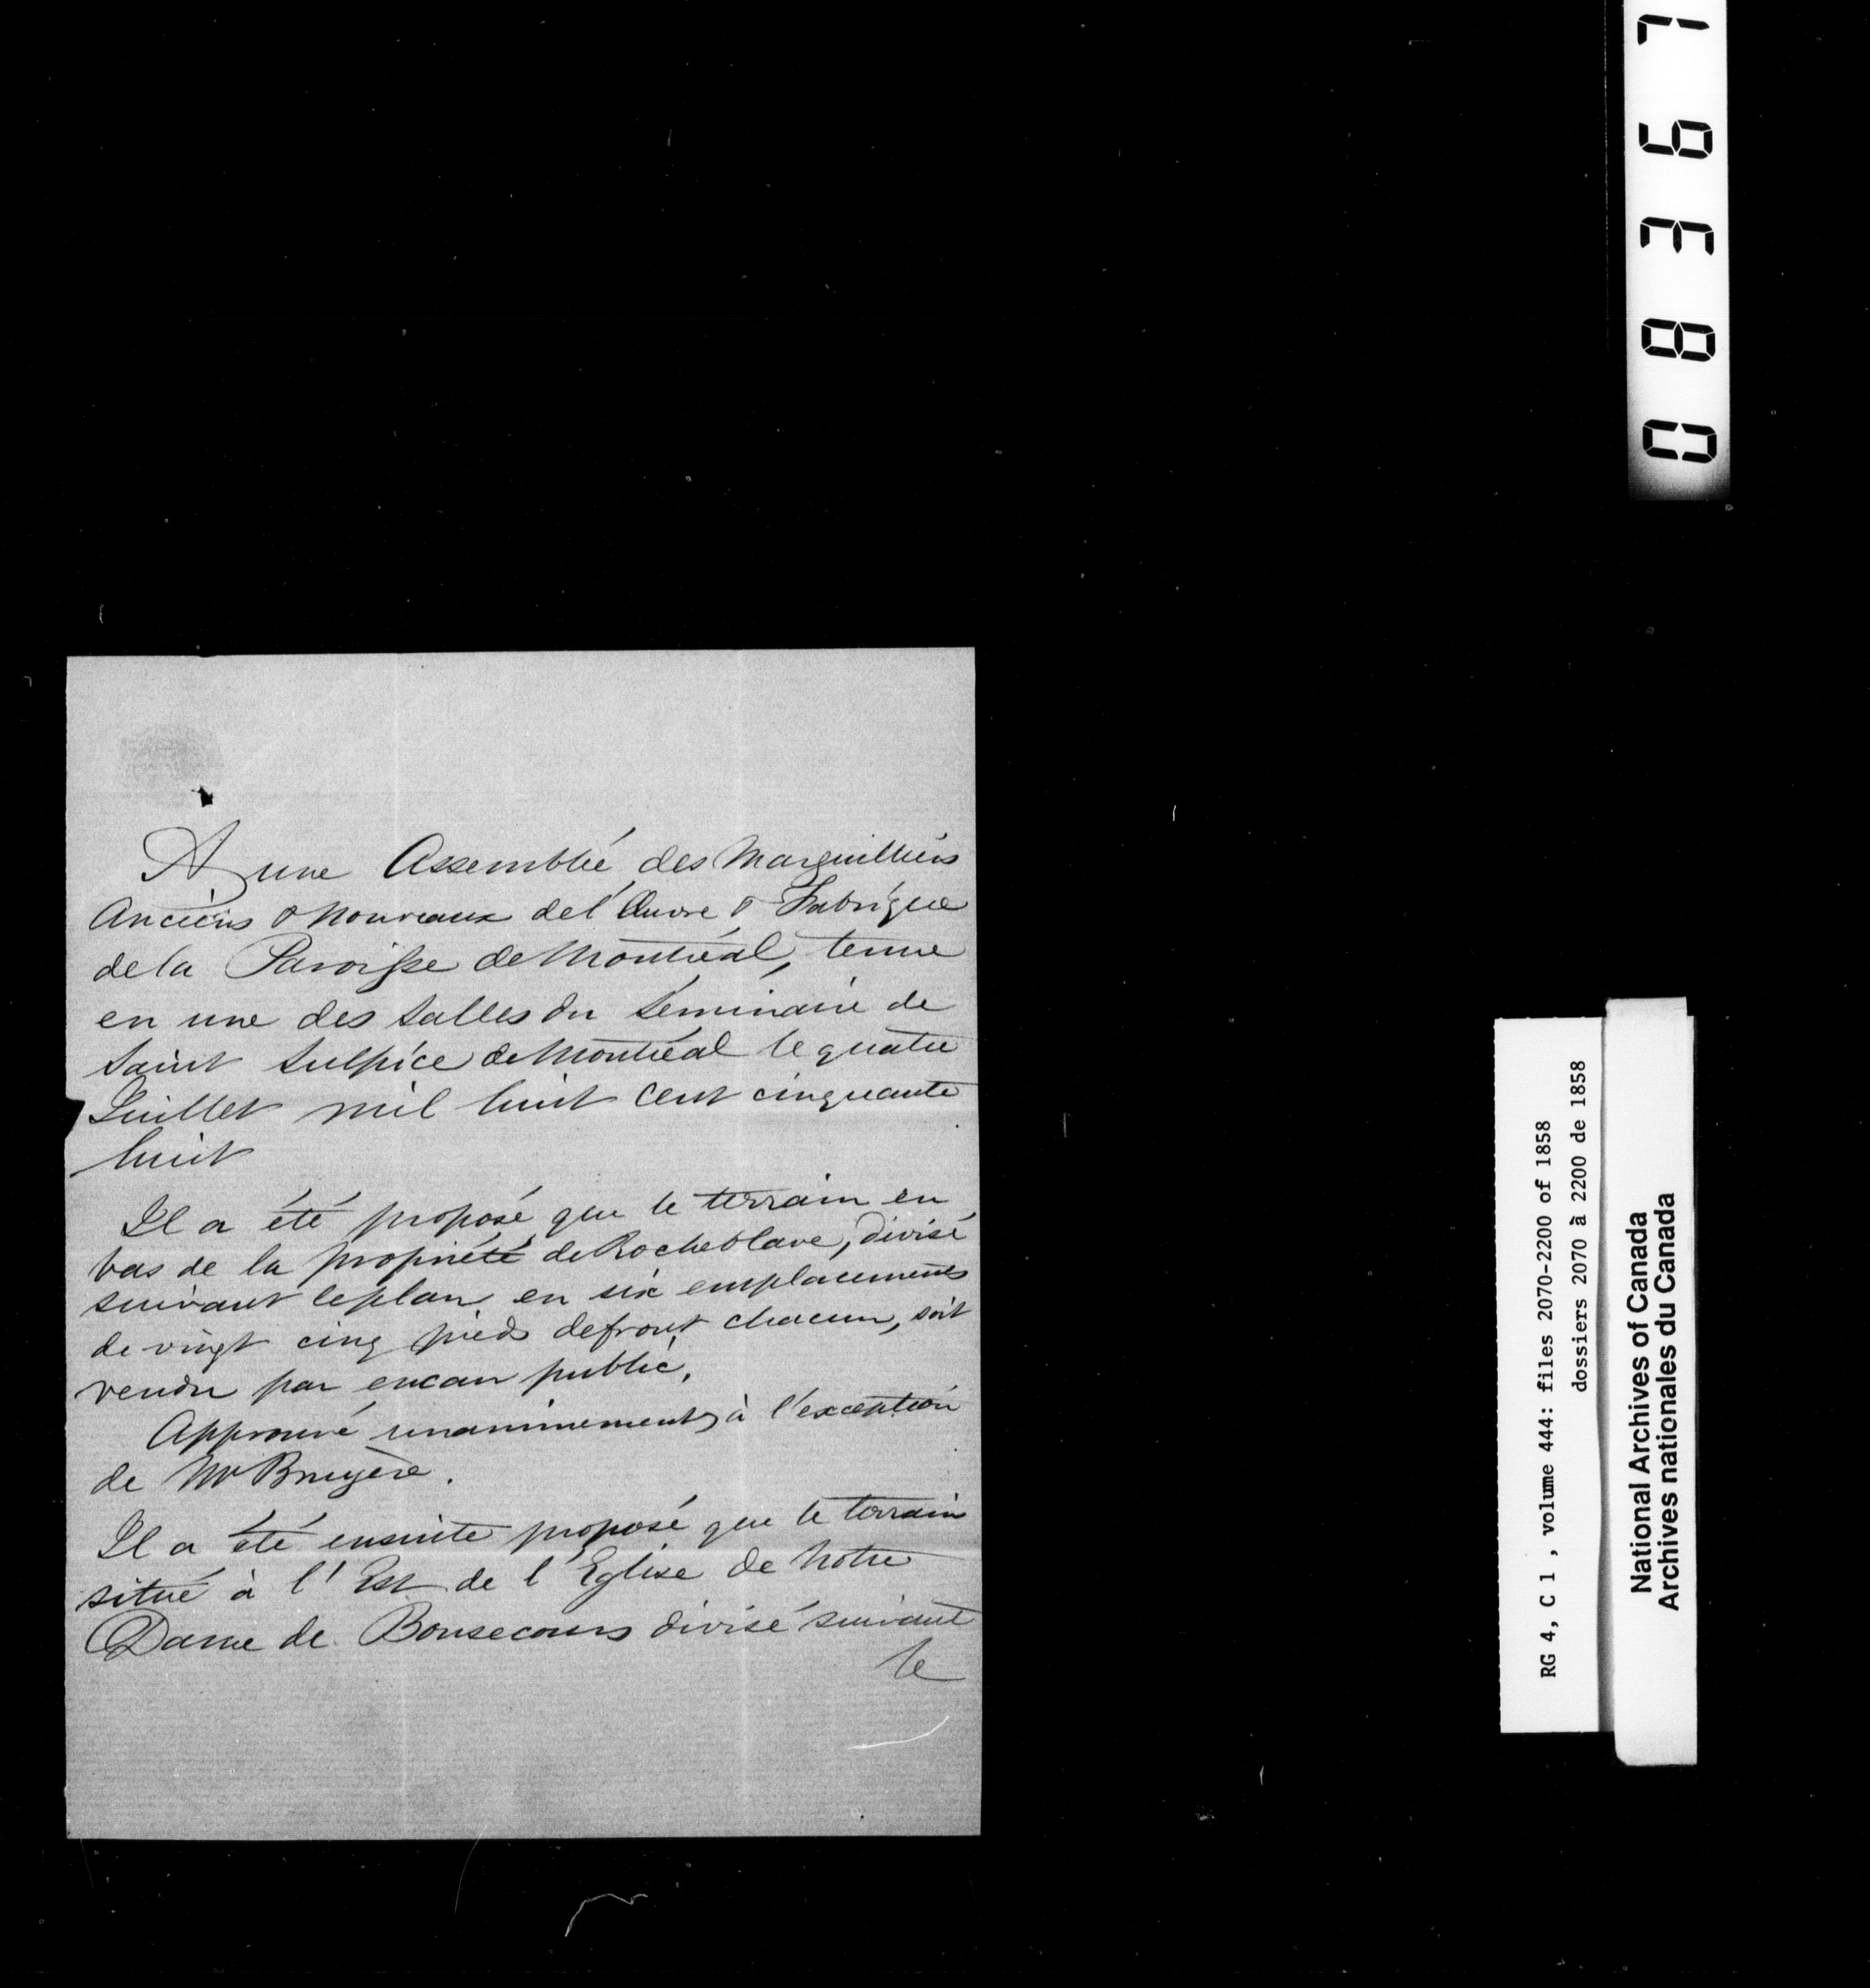 A une Assemblée des Marguilliers
Anciens & Nouveaux de l'Œuvre & Fabrique
de la Paroisse de Montréal, tenue
en une des salles du Séminaire de
Saint Sulpice de Montréal le quatre
Juillet mil huit cent cinquante
huit
Il a été proposé que le terrain en
bas de la propriété de Rocheblave, divisé
suivant le plan en six emplacements
de vingt cinq pieds de front chacun, soit
vendu par encan public.
Approuvé unanimement, à l'exception
de Mr Bruyère.
Il a été ensuite proposé que le terrain
situé à l'Est de l'Eglise de Notre
Dame de Bonsecours divisé suivant
le
08367
RG 4, C 1 , volume 444: files 2070-2200 of 1858
dossiers 2070 à 2200 de 1858
National Archives of Canada
Archives nationales du Canada